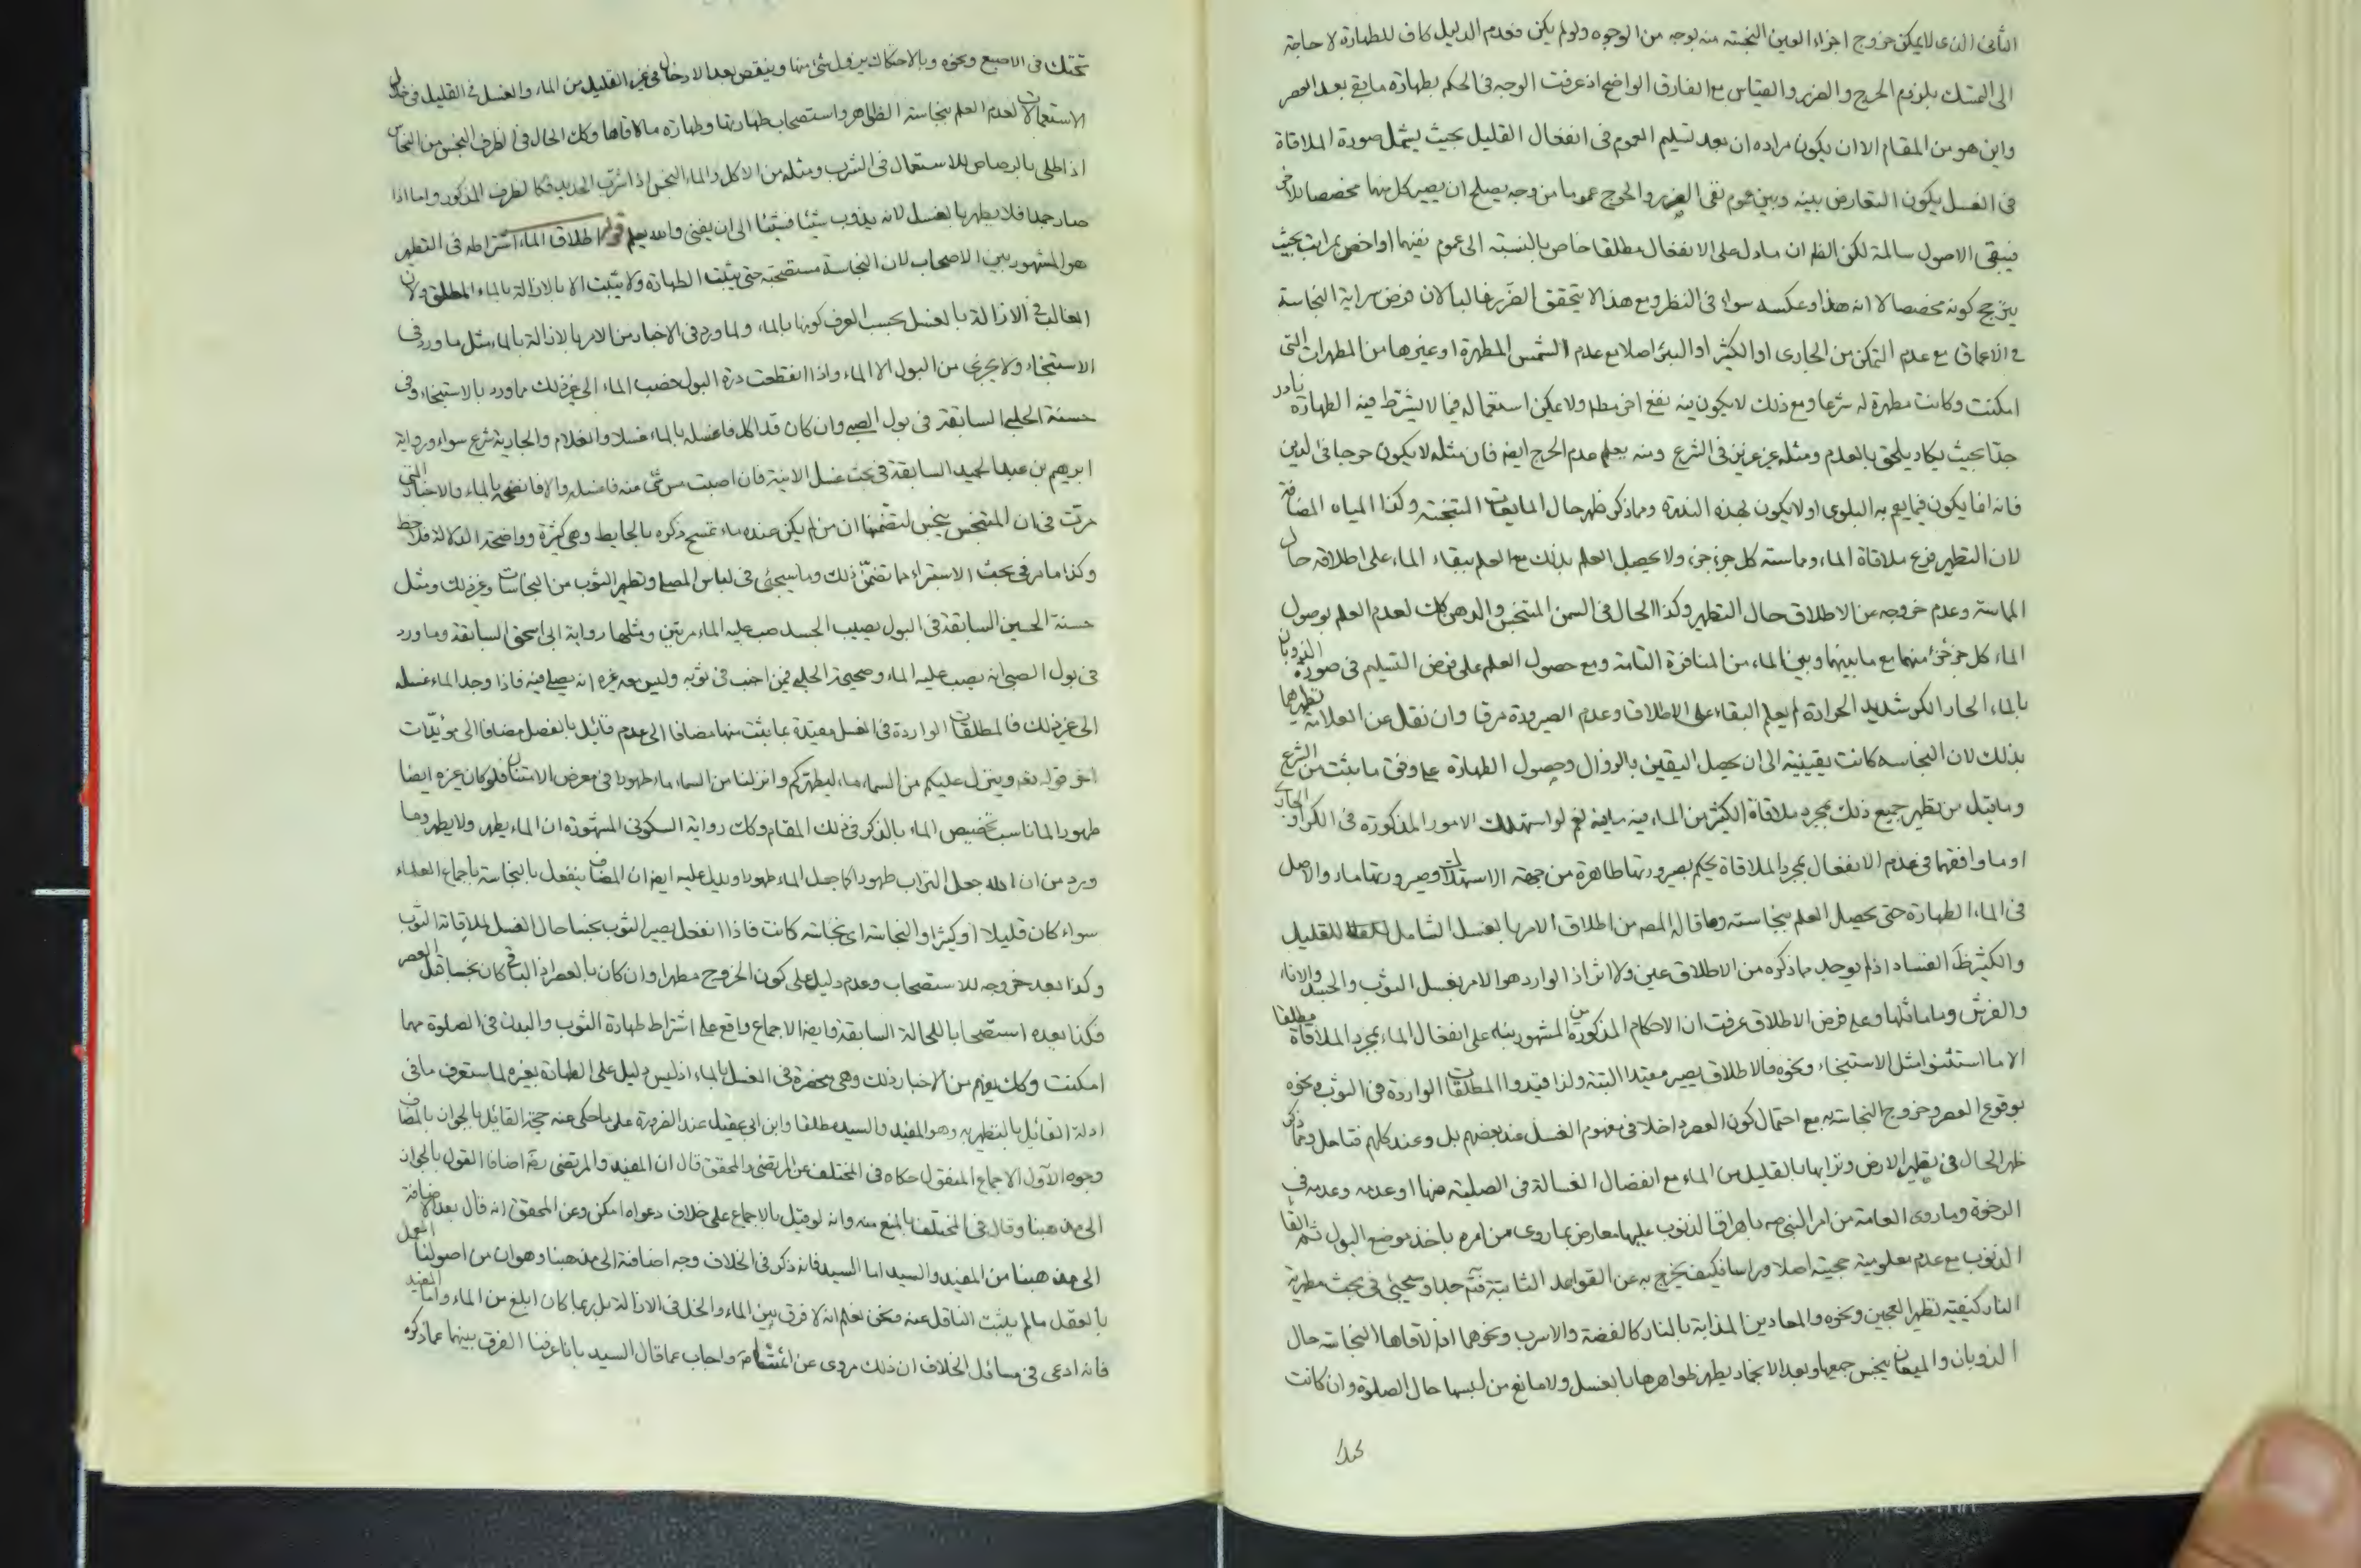 الثانى الذى لا يمكن خروج اجزاء العين النجسة منه بوجه من الوجوه ولو لم يكن فعدم الدليل كاف للطهارة لا حاجة
الى التمسك بلزوم الحرج والضرر والقياس مع الفارق الواضح اذ عرفت الوجه فى الحكم بطهارة ما بقى بعد العصر
واين هو من المقام الا ان يكون مراده ان بعد تسليم العموم فى انفعال القليل بحيث يشمل صورة الملاقاة
فى الغسل يكون التعارض بينه وبين عموم نفى الضرر والحرج عموما من وجه يصلح ان يصير كل منهما مخصصا للاخر
فيبقى الاصول سالمة لكن الظ ان ما دل على الانفعال مطلقا خاص بالنسبة الى عموم نفيهما او اخص بمراتب بحيث
يترجح كونه مخصصا لا انه هذا وعكسه سواء فى النظر ومع هذا لا يتحقق الضرر غالبا لان فرض سراية النجاسة
فى الاعماق مع عدم التمكن من الجارى او الكثير او البئر اصلا مع عدم الشمس المطهرة او غيرها من المطهرات التى
امكنت وكانت مطهرة له شرعا ومع ذلك لا يكون فيه نفع اخر مطلقا ولا يمكن استعماله فيما لا يشترط فيه الطهارة نادر
جدا بحيث يكاد يلحق بالعدم ومثله غير عزيز فى الشرع ومنه يعلم عدم الحرج ايضا فان مثله لا يكون حرجا فى الدين
فانه انما يكون فيما يعم به البلوى او لا يكون بهذه الندرة ومما ذكر ظهر حال المايعات المتنجسة وكذا المياه المضافة
لان التطهير فرع ملاقاة الماء ومماسته كل جزء جزء ولا يحصل العلم بذلك مع العلم ببقاء الماء على اطلاقه حال
المماسة وعدم خروجه عن الاطلاق حال التطهير وكذا الحال فى السمن المتنجس والدهن كك لعدم العلم بوصول
الماء كل جزء جزء منهما مع ما بينهما وبين الماء من المنافرة التامة ومع حصول العلم على فرض التسليم فى صورة الذوبان
بالماء الحار الكر شديد الحرارة لم يعلم البقاء على الاطلاق وعدم الصيرورة مرقا وان نقل عن العلامة تطهيرهما
بذلك لان النجاسة كانت يقينية الى ان يحصل اليقين بالزوال وحصول الطهارة على وفق ما يثبت من الشرع
وما قيل من تطهير جميع ذلك بمجرد ملاقاة الكثير من الماء فيه ما فيه نعم لو استهلك الامور المذكورة فى الكر او الجارى
او ما وافقهما فى عدم الانفعال بمجرد الملاقاة يحكم بصيرورتها طاهرة من جهة الاستهلاك وصيرورتها ماء والاصل
فى الماء الطهارة حتى يحصل العلم بنجاسته وما قال المص من اطلاق الامر بالغسل الشامل للقليل
والكثير ظ الفساد اذ لم يوجد مما ذكره من الاطلاق عين ولا اثر اذ الوارد هو الامر بغسل الثوب والجسد والاناء
والفرش وما ماثلها وعلى فرض الاطلاق عرفت ان الاحكام المذكورة من المشهور بناء على انفعال الماء بمجرد الملاقاة مطلقا
الا ما استثنوا مثل الاستنجاء ونحوه فالاطلاق يصير مقيدا البتة ولذا قيدوا المطلقات الواردة فى الثوب ونحوه
بوقوع العصر وخروج النجاسة به مع احتمال كون العصر داخلا فى مفهوم الغسل عند بعضهم بل وعند كلهم فتامل ومما ذكر
ظهر الحال فى تطهير الارض وترابها بالقليل من الماء مع انفصال الغسالة فى الصلبة منها او عدمه وعدمه فى
الرخوة وما روى العامة من امر النبى صه باهراق الذنوب عليها معارض بما روى من امره باخذ موضع البول ثم القاء
الذنوب مع عدم معلومية حجيته اصلا وراسا فكيف يخرج به عن القواعد الثابتة فتم جدا وسيجئ فى بحث مطهرية
النار كيفية تطهير العجين ونحوه والمعادين المذابة بالنار كالفضة والاسرب ونحوهما اذا لاقاها النجاسة حال
الذوبان والميعان ينجس جميعها وبعد الانجماد يطهر ظواهرها بالغسل ولا مانع من لبسها حال الصلوة وان كانت
تحتك فى الاصبع ونحوه وبالاحتكاك يزول شئ منها وينقص بعد الادخال فى غير القليل من الماء والغسل فى القليل فى خلال
الاستعمالات لعدم العلم بنجاسة الظاهر واستصحاب طهارتها وطهارة ما لاقاها وكك الحال فى الظرف النجس من النحاس
اذا طلى بالرصاص للاستعمال فى الشرب ومثله من الاكل والماء النجس اذا شرب الحديد فكالظرف المذكور واما اذا
صار جمدا فلا يطهر بالغسل لانه يذوب شيئا فشيئا الى ان يفنى والله يعلم قوله اطلاق الماء اشتراطه فى التطهير
هو المشهور بين الاصحاب لان النجاسة مستصحبة حتى يثبت الطهارة ولا يثبت الا بالازالة بالماء المطلق ولان
الغالب فى الازالة بالغسل بحسب العرف كونها بالماء ولما ورد فى الاخبار من الامر بالازالة بالماء مثل ما ورد فى
الاستنجاء ولا يجزى من البول الا الماء واذا انقطعت درة البول فصب الماء الى غير ذلك مما ورد بالاستنجاء وفى
حسنة الحلبى السابقة فى بول الصبى وان كان قد اكل فاغسله بالماء غسلا والغلام والجارية شرع سواء ورواية
ابرهيم بن عبد الحميد السابقة فى بحث غسل الانية فان اصبت مس شئ منه فاغسله والا فانضحه بالماء والاخبار التى
مرت فى ان المتنجس ينجس لتضمنها ان من لم يكن عنده ماء تمسح ذكره بالحايط وهى كثيرة وواضحة الدلالة فلاحظ
وكذا ما مر فى بحث الاستبراء مما تضمن ذلك وما سيجئ فى لباس المصلى وتطهير الثوب من النجاسات وغير ذلك ومثل
حسنة الحسين السابقة فى البول يصيب الجسد صب عليه الماء مرتين ومثلها رواية ابى اسحق السابقة وما ورد
فى بول الصبى انه يصب عليه الماء وصحيحة الحلبى فيمن اجنب فى ثوبه وليس معه غيره انه يصلى فيه فاذا وجد الماء غسله
الى غير ذلك فالمطلقات الواردة فى الغسل مقيدة بما يثبت منها مضافا الى عدم قائل بالفصل مضافا الى مؤيدات
اخر قوله تعالى وينزل عليكم من السماء ماء ليطهركم وانزلنا من السماء ماء طهورا فى معرض الامتنان فلو كان غيره ايضا
طهورا لما ناسب تخصيص الماء بالذكر فى ذلك المقام وكك رواية السكونى المشهورة ان الماء يطهر ولا يطهر وما
ورد من ان الله جعل التراب طهورا كما جعل الماء طهورا ويدل عليه ايضا ان المضاف ينفعل بالنجاسة باجماع العلماء
سواء كان قليلا او كثيرا والنجاسة اى نجاسة كانت فاذا انفعل يصير الثوب نجسا حال الغسل لملاقاة الثوب
وكذا بعد خروجه للاستصحاب وعدم دليل على كون الخروج مطهرا وان كان بالعصر اذ الباقى كان نجسا قبل العصر
فكذا بعده استصحابا للحالة السابقة وايضا الاجماع واقع على اشتراط طهارة الثوب والبدن فى الصلوة مهما
امكنت وكك يفهم من الاخبار ذلك وهى منحصرة فى الغسل بالماء اذ ليس دليل على الطهارة بغيره لما ستعرف ما فى
ادلة القائل بالتطهير به وهو المفيد والسيد مطلقا وابن ابى عقيل عند الضرورة على ما حكى عنه حجة القائل بالجواز بالمضاف
وجوه الاول الاجماع المنقول حكاه فى المختلف عن المرتضى والمحقق قال ان المفيد والمرتضى رض اضافا القول بالجواز
الى مذهبنا وقال فى المختلف بالمنع منه وانه لو قيل بالاجماع على خلاف دعواه امكن وعن المحقق انه قال بعد الاضافة
الى مذهبنا من المفيد والسيد اما السيد فانه ذكر فى الخلاف وجه اضافته الى مذهبنا وهو ان من اصولنا العمل
بالعقل ما لم يثبت الناقل عنه ونحن نعلم انه لا فرق بين الماء والخل فى الازالة بل ربما كان ابلغ من الماء واما المفيد
فانه ادعى فى مسائل الخلاف ان ذلك مروى عن ائمتنا واجاب عما قال السيد بانا عرفنا الفرق بينهما عما ذكره